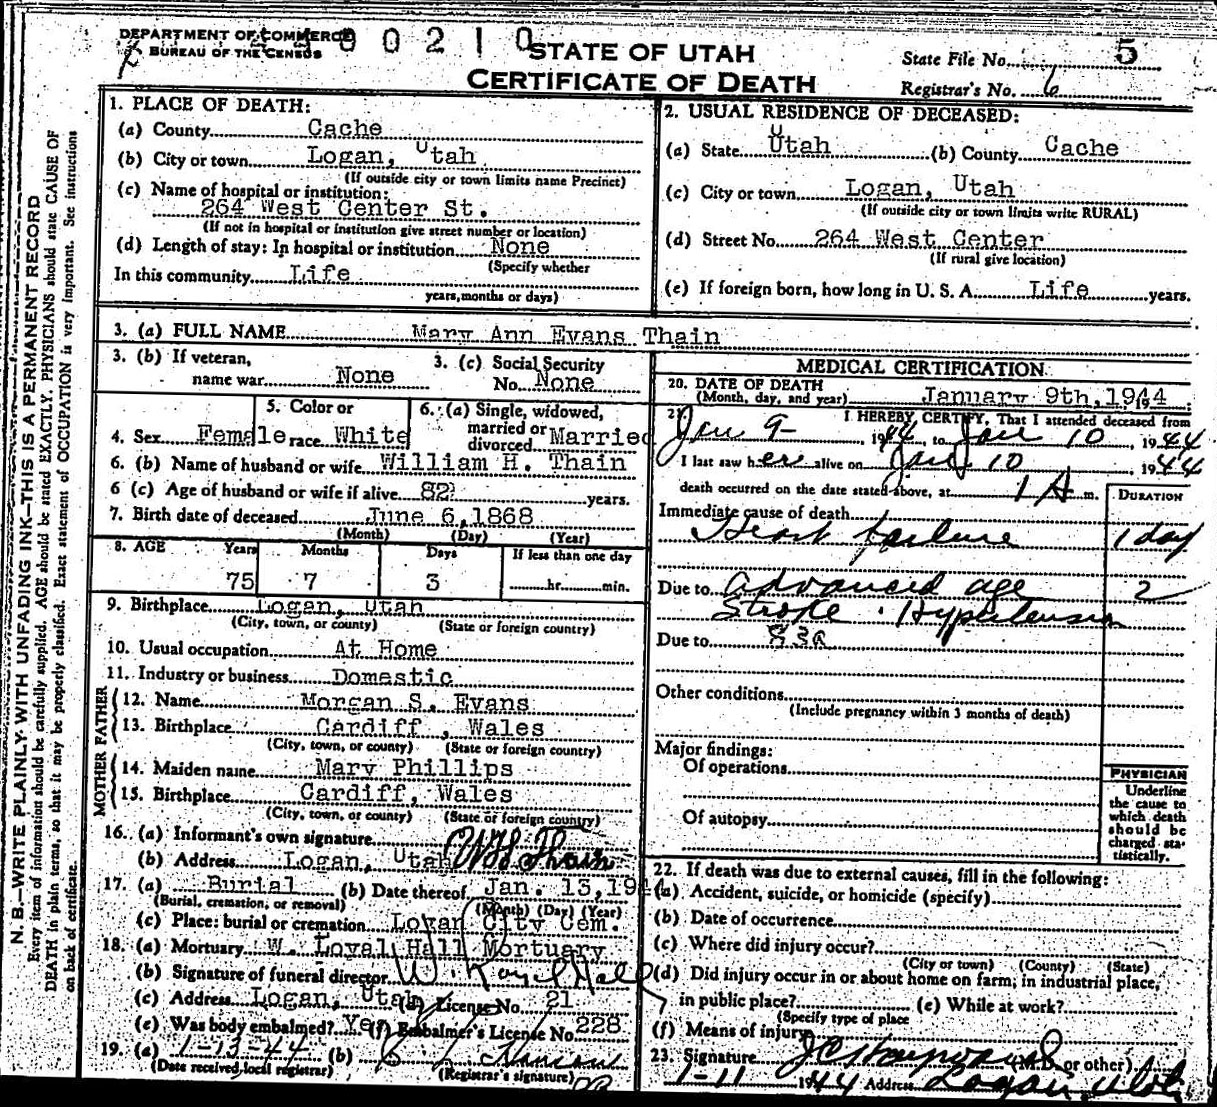 N. B.—WRITE PLAINLY WITH UNFADING INK—THIS IS A PERMANENT RECORD
Every item of information should be carefully supplied. AGE should be stated EXACTLY. PHYSICIANS should state CAUSE OF
DEATH in plain terms, so that it may be properly classified. Exact statement of OCCUPATION is very important. See instructions
on back of certificate.
DEPARTMENT OF COMMERCE
BUREAU OF THE CENSUS
0 0 2 1 0
STATE OF UTAH
CERTIFICATE OF DEATH
State File No. 5
Registrar's No. 6
1. PLACE OF DEATH:
(a) County Cache
(b) City or town Logan, Utah
(If outside city or town limits name Precinct)
(c) Name of hospital or institution:
264 West Center St.
(If not in hospital or institution give street number or location)
(d) Length of stay: In hospital or institution None
(Specify whether
In this community Life
years, months or days)
2. USUAL RESIDENCE OF DECEASED:
(a) State Utah (b) County Cache
(c) City or town Logan, Utah
(If outside city or town limits write RURAL)
(d) Street No. 264 West Center
(If rural give location)
(e) If foreign born, how long in U. S. A. Life years.
3. (a) FULL NAME Mary Ann Evans Thain
3. (b) If veteran,
name war None
3. (c) Social Security
No. None
4. Sex Female
5. Color or
race White
6. (a) Single, widowed,
married or
divorced Married
6. (b) Name of husband or wife William H. Thain
6 (c) Age of husband or wife if alive 82 years.
7. Birth date of deceased June 6, 1868
(Month) (Day) (Year)
8. AGE Years Months Days If less than one day
75 7 3 hr. min.
9. Birthplace Logan, Utah
(City, town, or county) (State or foreign country)
10. Usual occupation At Home
11. Industry or business Domestic
FATHER
12. Name Morgan S. Evans
13. Birthplace Cardiff, Wales
(City, town, or county) (State or foreign country)
MOTHER
14. Maiden name Mary Phillips
15. Birthplace Cardiff, Wales
(City, town, or county) (State or foreign country)
16. (a) Informant's own signature WH Thain
(b) Address Logan, Utah
17. (a) Burial (b) Date thereof Jan. 13, 194
(Burial, cremation, or removal) (Month) (Day) (Year)
(c) Place: burial or cremation Logan City Cem.
18. (a) Mortuary W. Loyal Hall Mortuary
(b) Signature of funeral director W. Loyal Hall
(c) Address Logan, Utah (d) License No. 21
(e) Was body embalmed? Yes (f) Embalmer's License No. 228
19. (a) 1-13-44 (b)
(Date received local registrar) (Registrar's signature)
MEDICAL CERTIFICATION
20. DATE OF DEATH
(Month, day, and year) January 9th, 1944
21. I HEREBY CERTIFY, That I attended deceased from
Jan 9- , 1944, to Jan 10 , 1944
I last saw her alive on Jan 10 , 1944
death occurred on the date stated above, at 1 A m.
DURATION
Immediate cause of death
Heart failure 1 day
Due to Advanced age 2
Stroke . Hypertension
Due to 83a
Other conditions
(Include pregnancy within 3 months of death)
Major findings:
Of operations
Of autopsy
PHYSICIAN
Underline
the cause to
which death
should be
charged sta-
tistically.
22. If death was due to external causes, fill in the following:
(a) Accident, suicide, or homicide (specify)
(b) Date of occurrence
(c) Where did injury occur?
(City or town) (County) (State)
(d) Did injury occur in or about home on farm, in industrial place,
in public place? (e) While at work?
(Specify type of place
(f) Means of injury
23. Signature J C Hayward (M.D. or other)
1-11 1944 Address Logan, Utah